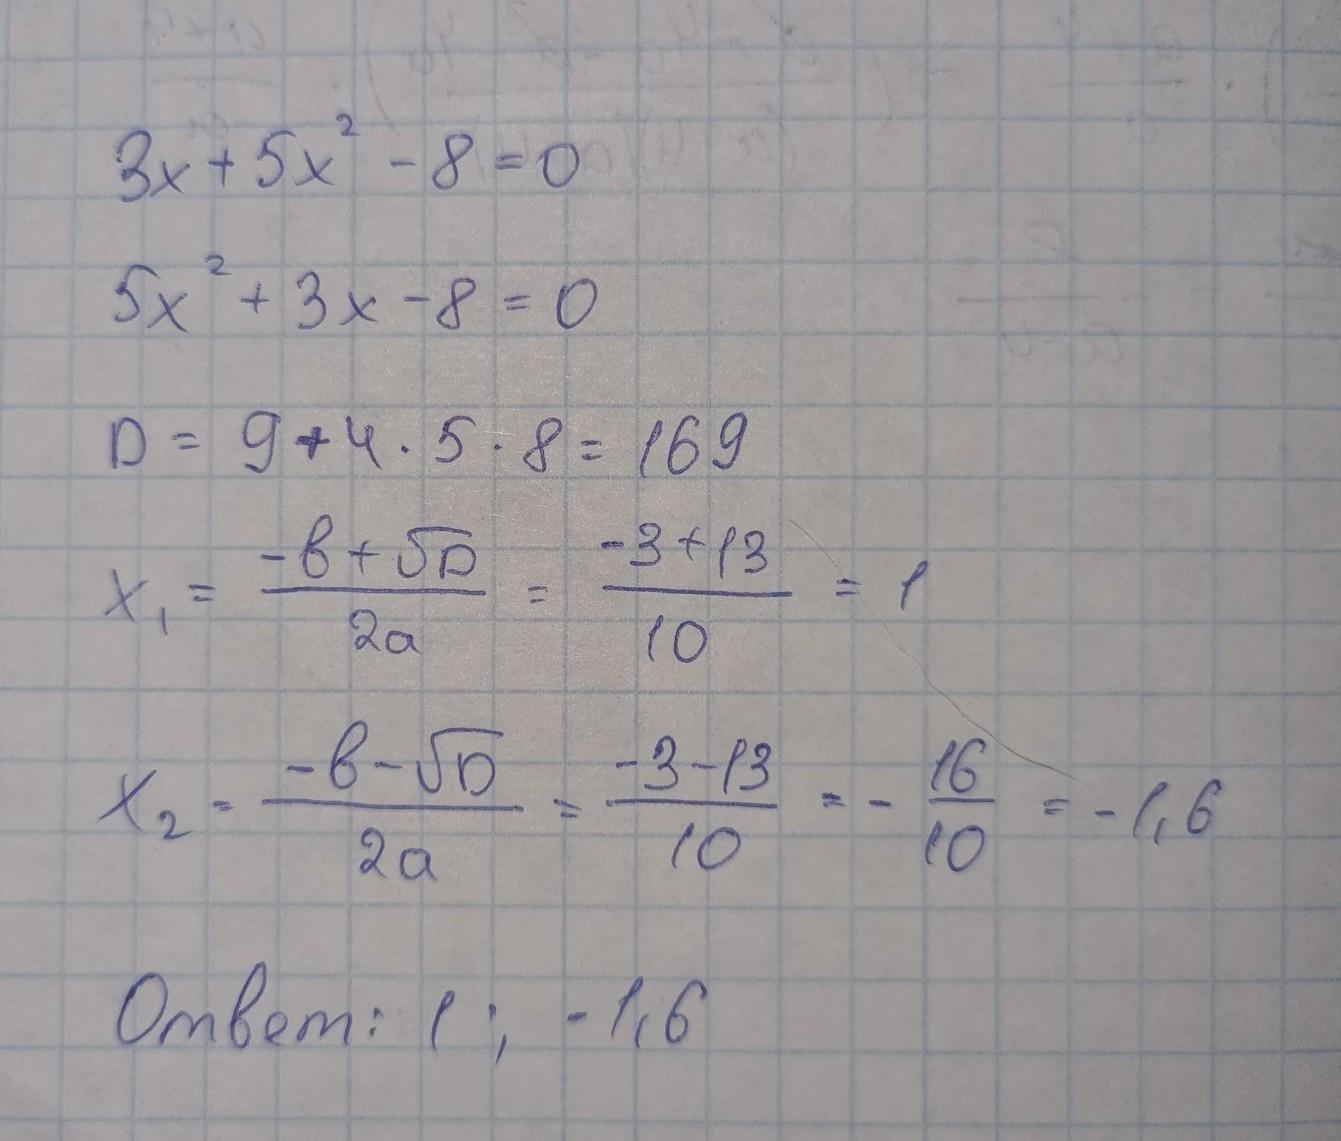 3x + 5x² - 8 = 0
5x² + 3x - 8 = 0
D = 9 + 4 · 5 · 8 = 169
x₁ = (-в + √D) / 2a = (-3 + 13) / 10 = 1
x₂ = (-в - √D) / 2a = (-3 - 13) / 10 = - 16/10 = -1,6
Ответ: 1 ; -1,6